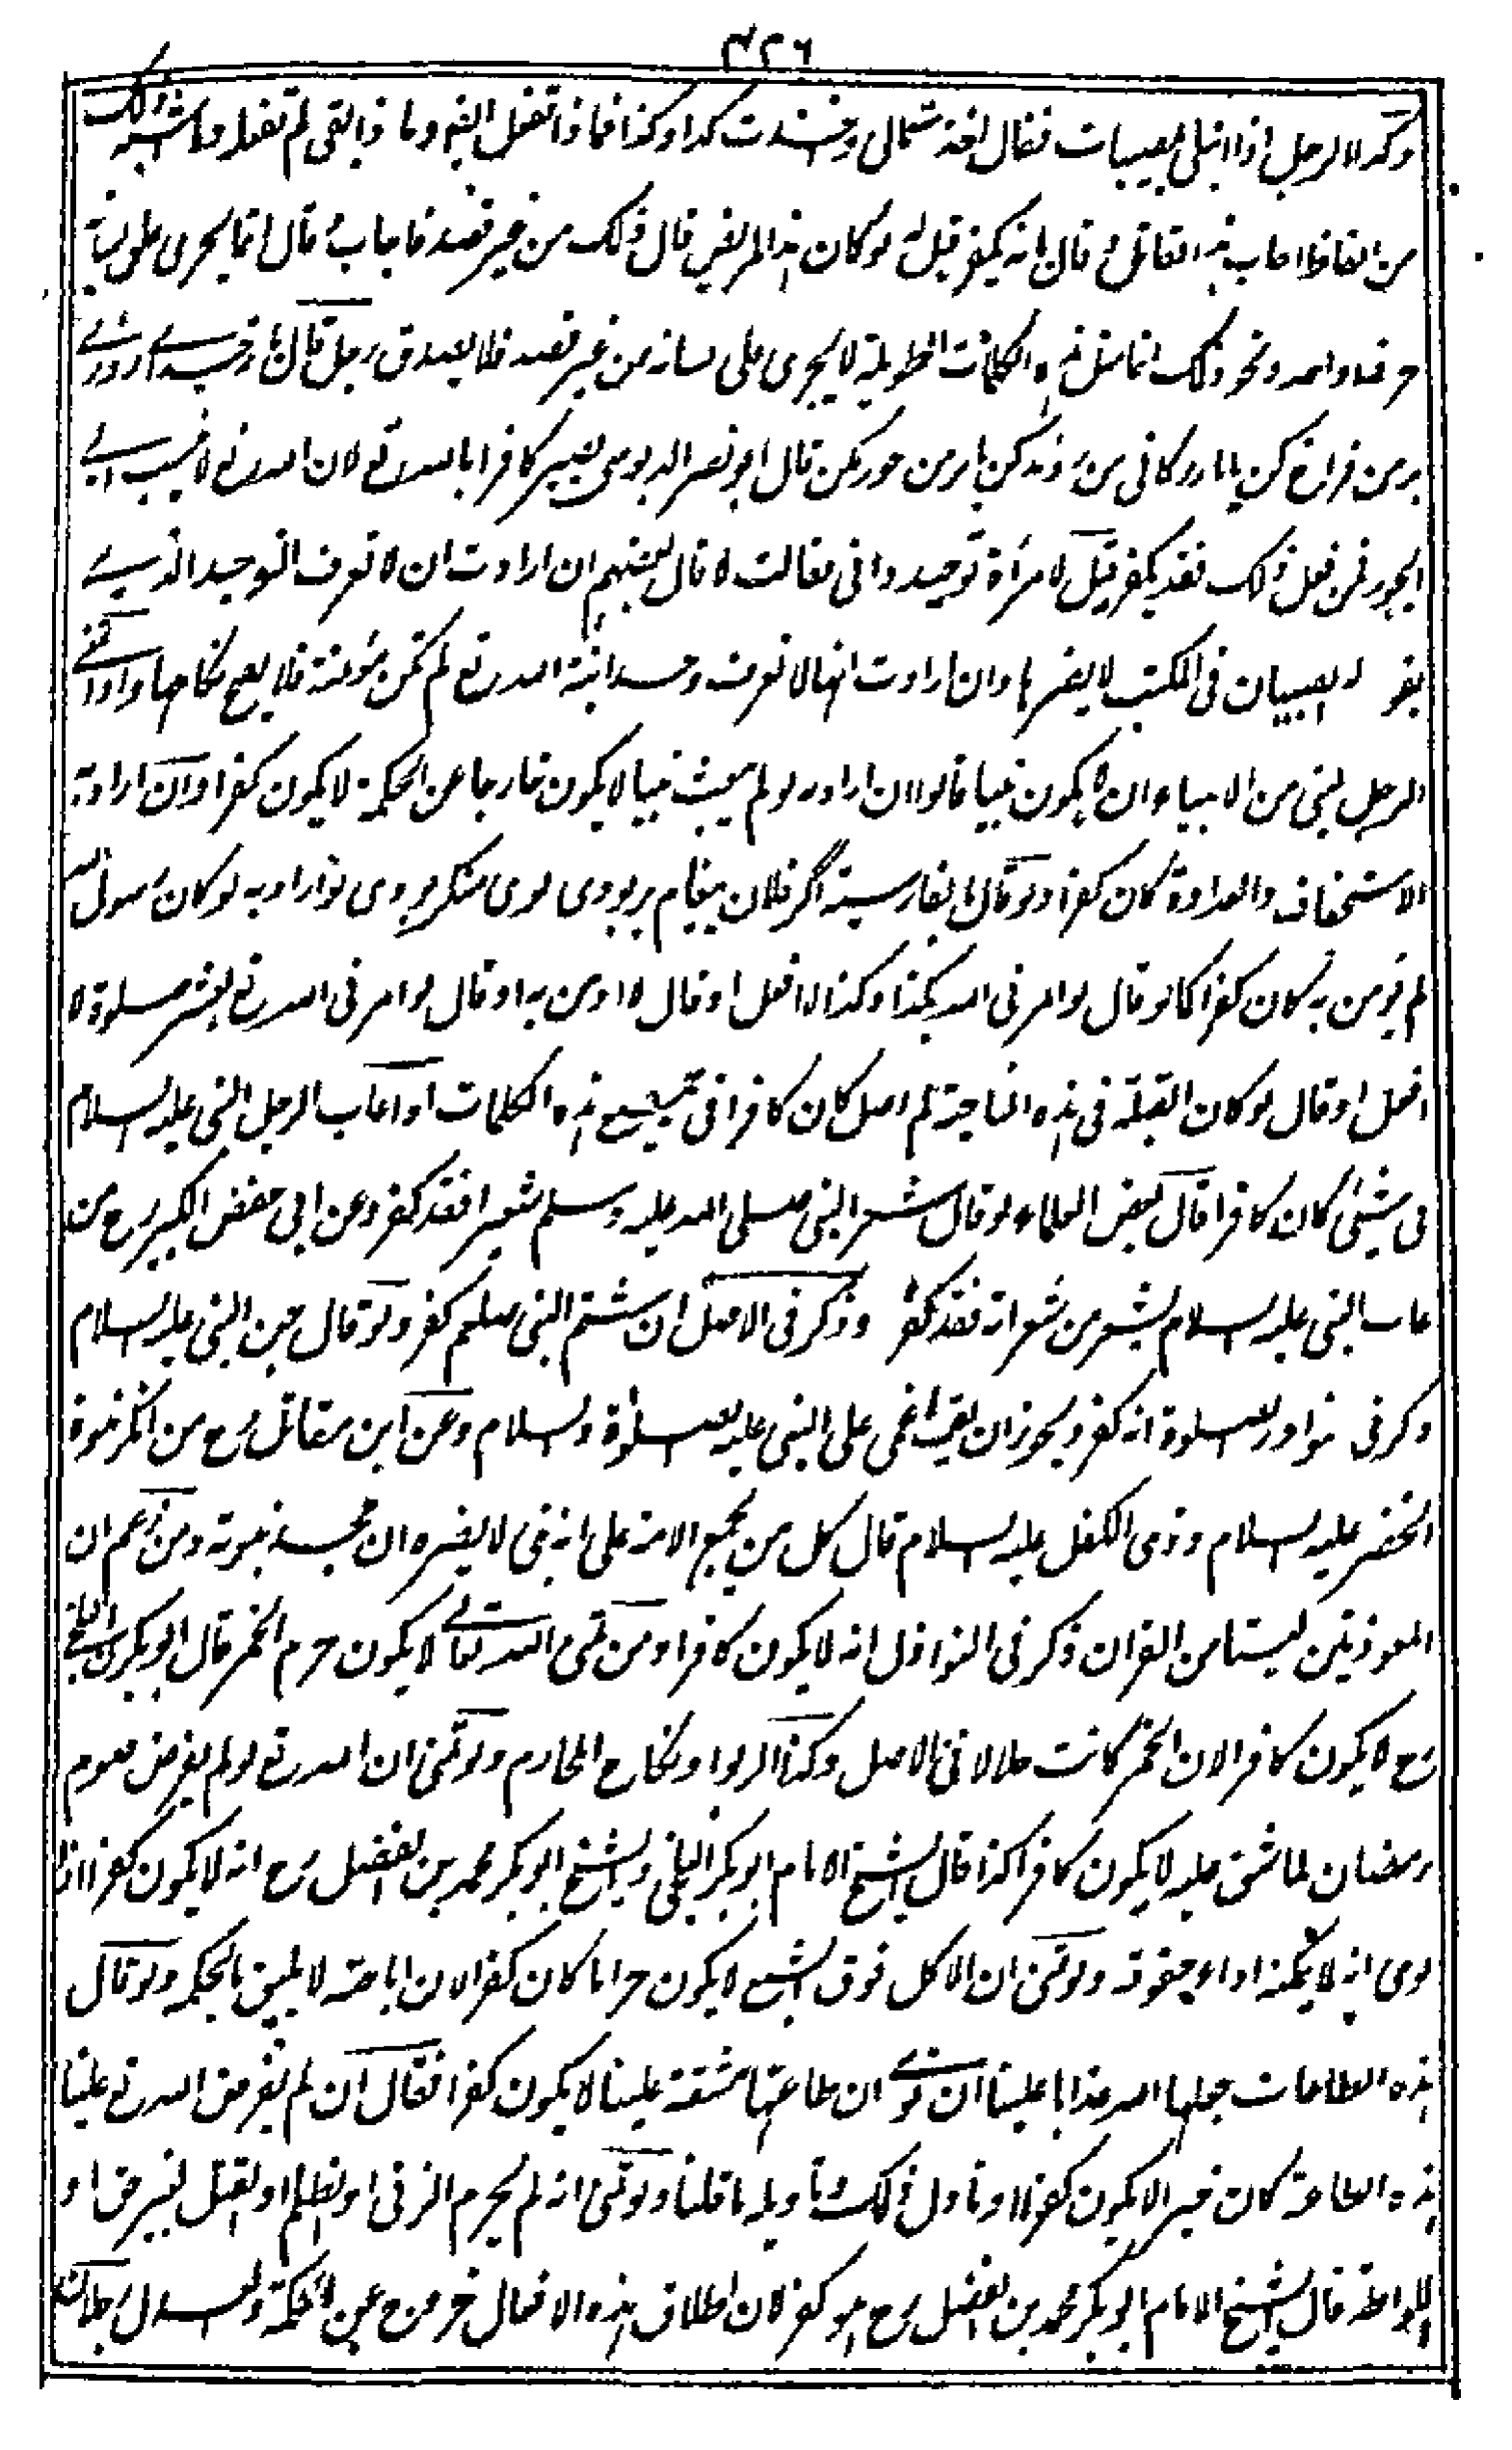 ٤٢٦
وكذا الرجل اذا ابتلى بمصيبات فقال اخذت مالى واخذت كذا وكذا فماذا تفعل ايضا وما ذا بقى لم تفعله وما اشبه ذلك
من الفاظ اجاب هذا القائل وقال انه يكفر قيل له لو كان هذا المريض قال ذلك من غير قصد فاجاب وقال انما يجرى على لسانه
حرف واحد ونحو ذلك اما مثل هذه الكلمات الطويلة لا يجرى على لسانه من غير قصد فلا يصدق رجل قال يا رخداى روزى
بر من فراخ كن يا بازركانى من رونده كن يا بر من جور مكن قال ابو نصر الدبوسى يصير كافرا بالله تع لان الله تع لا ينسب الى
الجور فمن فعل ذلك فقد كفر قيل لامرأة توحيد دانى فقالت لا قال بعضهم ان ارادت ان لا تعرف التوحيد الذى
يقوله الصبيان فى المكتب لا يضرها وان ارادت انها لا تعرف وحدانية الله تع لم تكن مؤمنة فلا يصح نكاحها واذا تمنى
الرجل لنبى من الانبياء ان لا يكون نبيا قالوا ان اراد به لو لم يبعث نبيا لا يكون خارجا عن الحكمة لا يكون كفرا وان اراد به
الاستخفاف والعداوة كان كفرا ولو قال بالفارسية اگر فلان پيغامبر بودى بوى نگرويدمى لو اراد به لو كان رسول الله
لم يؤمن به كان كفرا كما لو قال لو امرنى الله بكذا وكذا لا افعل او قال لا اومن به او قال لو امرنى الله تع بعشر صلوة لا
افعل او قال لو كان القبلة فى هذه الناحية لم اصل كان كافرا فى جميع هذه الكلمات او اعاب الرجل النبى عليه السلام
فى شيئى كان كافرا قال بعض العلماء لو قال لشعر النبى صلى الله عليه وسلم شعيرا فقد كفر وعن ابى حفص الكبير رح من
عاب النبى عليه السلام بشعر من شعراته فقد كفر وذكر فى الاصل ان شتم النبى صلعم كفر ولو قال جن النبى عليه السلام
ذكر فى نوادر الصلوة انه كفر ويجوز ان يقال اغمى على النبى عليه الصلوة والسلام وعن ابن مقاتل رح من انكر نبوة
الخضر عليه السلام وذى الكفل عليه السلام قال كل من يجمع الامة على انه نبى لا يضره ان يجحد نبوته ومن زعم ان
المعوذتين ليستا من القران ذكر فى النوازل انه لا يكون كافرا ومن تمنى الله تعالى لا يكون حرم الخمر قال ابو بكر البلخى
رح لا يكون كافرا لان الخمر كانت حلالا فى الاصل وكذا الربوا ونكاح المحارم ولو تمنى ان الله تع لو لم يفرض صوم
رمضان لما شق عليه لا يكون كافرا كذا قال الشيخ الامام ابو بكر البلخى والشيخ ابو بكر محمد بن الفضل رح انه لا يكون كفرا اذا
نوى انه لا يمكنه اداء حقوقه ولو تمنى ان الاكل فوق الشبع لا يكون حراما كان كفرا لان اباحته لا يليق بالحكمة ولو قال
هذه الطاعات جعلها الله عذابا علينا ان نوى ان طاعتها مشقة علينا لا يكون كفرا فقال ان لم يفرض الله تع علينا
هذه الطاعة كان خيرا لا يكون كفرا اذا وتاول ذلك وتاويله ما قلنا ولو تمنى انه لم يحرم الزنى او الظلم او القتل بغير حق او
اللواطة قال الشيخ الامام ابو بكر محمد بن الفضل رح هو كفر لان اطلاق هذه الافعال خروج عن الحكمة والسوال رجلان